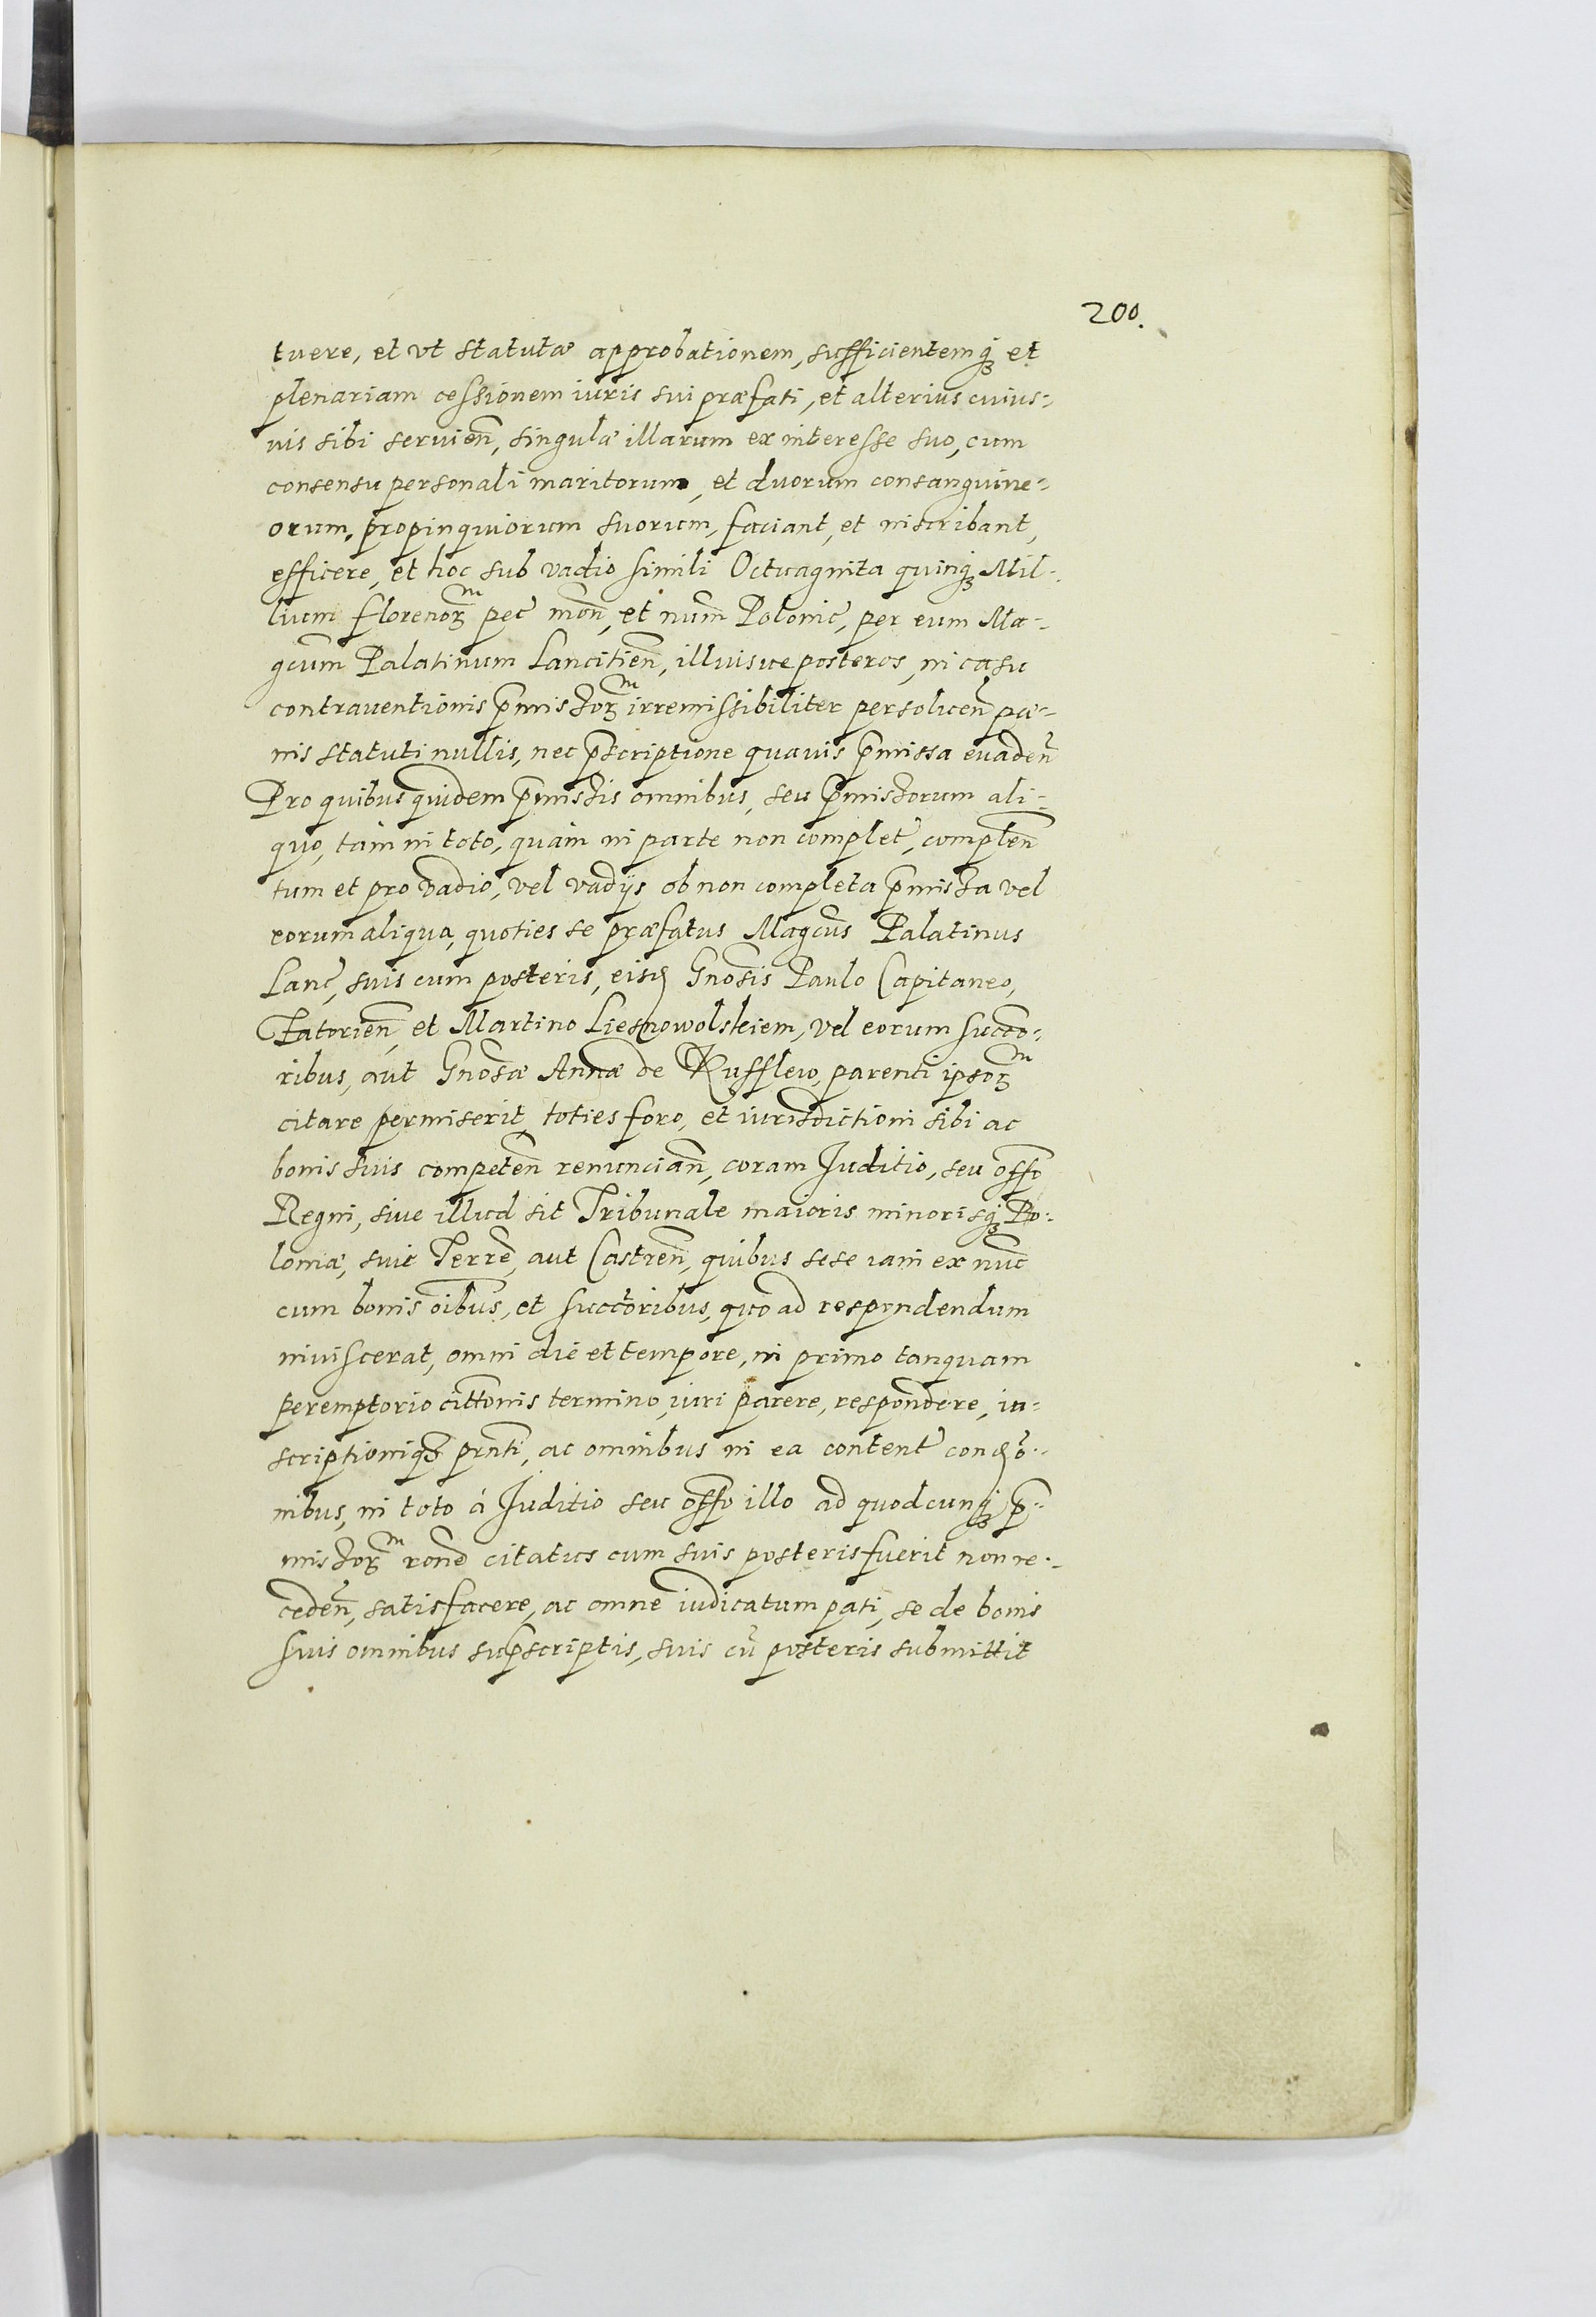 200.
tuere, et vt statutæ approbationem, sufficientemq₃ et
plenariam cessionem iuris sui præfati, et alterius cuius-
uis sibi seruien̄, singulæ illarum ex interesse suo, cum
consensu personali maritorum, et duorum consanguine-
orum, propinquiorum suorum, faciant, et inscribant,
efficere, et hoc sub vadio simili Octuaginta quinq₃ Mil-
lium florenoꝝm pec̃ mon̄, et num̄ Polonic̃, per eum Ma-
gcūm Palatinum Lancitien̄, illiusue posteros, in casu
contrauentionis p̄missoꝝm irremissibiliter persoluen̄ pæ-
nis statuti nullis, nec p̄scriptione quauis p̄missa euaden̄
Pro quibus quidem p̄missis omnibus, seu p̄missorum ali-
quo, tam in toto, quàm in parte non complet̃, complen̄
tum et pro vadio, vel vadijs ob non completa p̄missa vel
eorum aliqua, quoties se præfatus Magcūs Palatinus
Lanc̃, suis cum posteris, eisd Gnosīs Paulo Capitaneo,
et Martino Liesnowolskiem, vel eorum succo-
ribus, aut Gnosæ Annæ de Kufflew, parenti ipsoꝝm
citare permiserit, toties foro, et iurisdictioni sibi ac
bonis suis competen̄ renuncian̄, coram Juditio, seu off̄o
Regni, siue illud sit Tribunale maioris minorisq₃ Po-
loniæ, siue Terre̅, aut Castren̄, quibus sese iam ex nūc
cum bonis oībus, et succtoribus, quo ad respondendum
inuiscerat, omni die et tempore, in primo tanquam
peremptorio cittōnis termino, iuri parere, respondere, in-
scriptioniq₃ prn̄ti, ac omnibus in ea content̃ condõ-
nibus, in toto à Juditio seu off̄o illo ad quodcunq₃ p̄-
missoꝝm ron̄e citatus cum suis posteris fuerit non re-
ceden̄, satisfacere, ac omne iudicatum pati, se de bonis
suis omnibus sup̄scriptis, suis cū posteris submittit